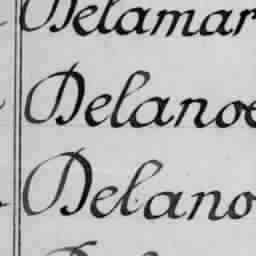 Delamar
Delanoe
Delano